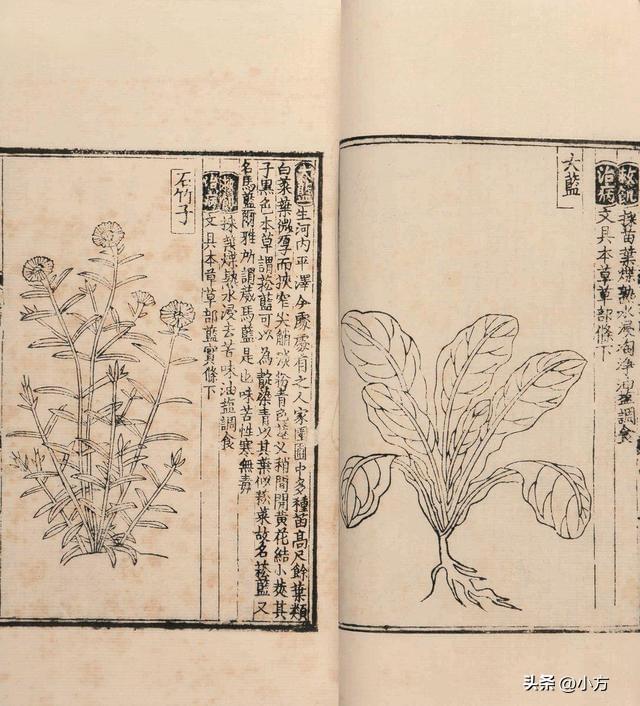 救飢採苗葉煠熟水浸淘淨油盐調食
治病文具本草草部條下
大藍
大藍生河內平澤今處處有之人家園圃中多種苗高尺餘葉類
白菜葉微厚而狹窄尖淡粉青色莖叉稍間開黃花結小莢其
子黑色本草謂菘藍可以為靛染青以其葉似菘菜故名菘藍又
名馬藍爾雅所謂葴馬藍是也味苦性寒無毒
救飢採葉煠熟水浸去苦味油盐調食
治病文具本草草部藍實條下
石竹子
头条 @小方